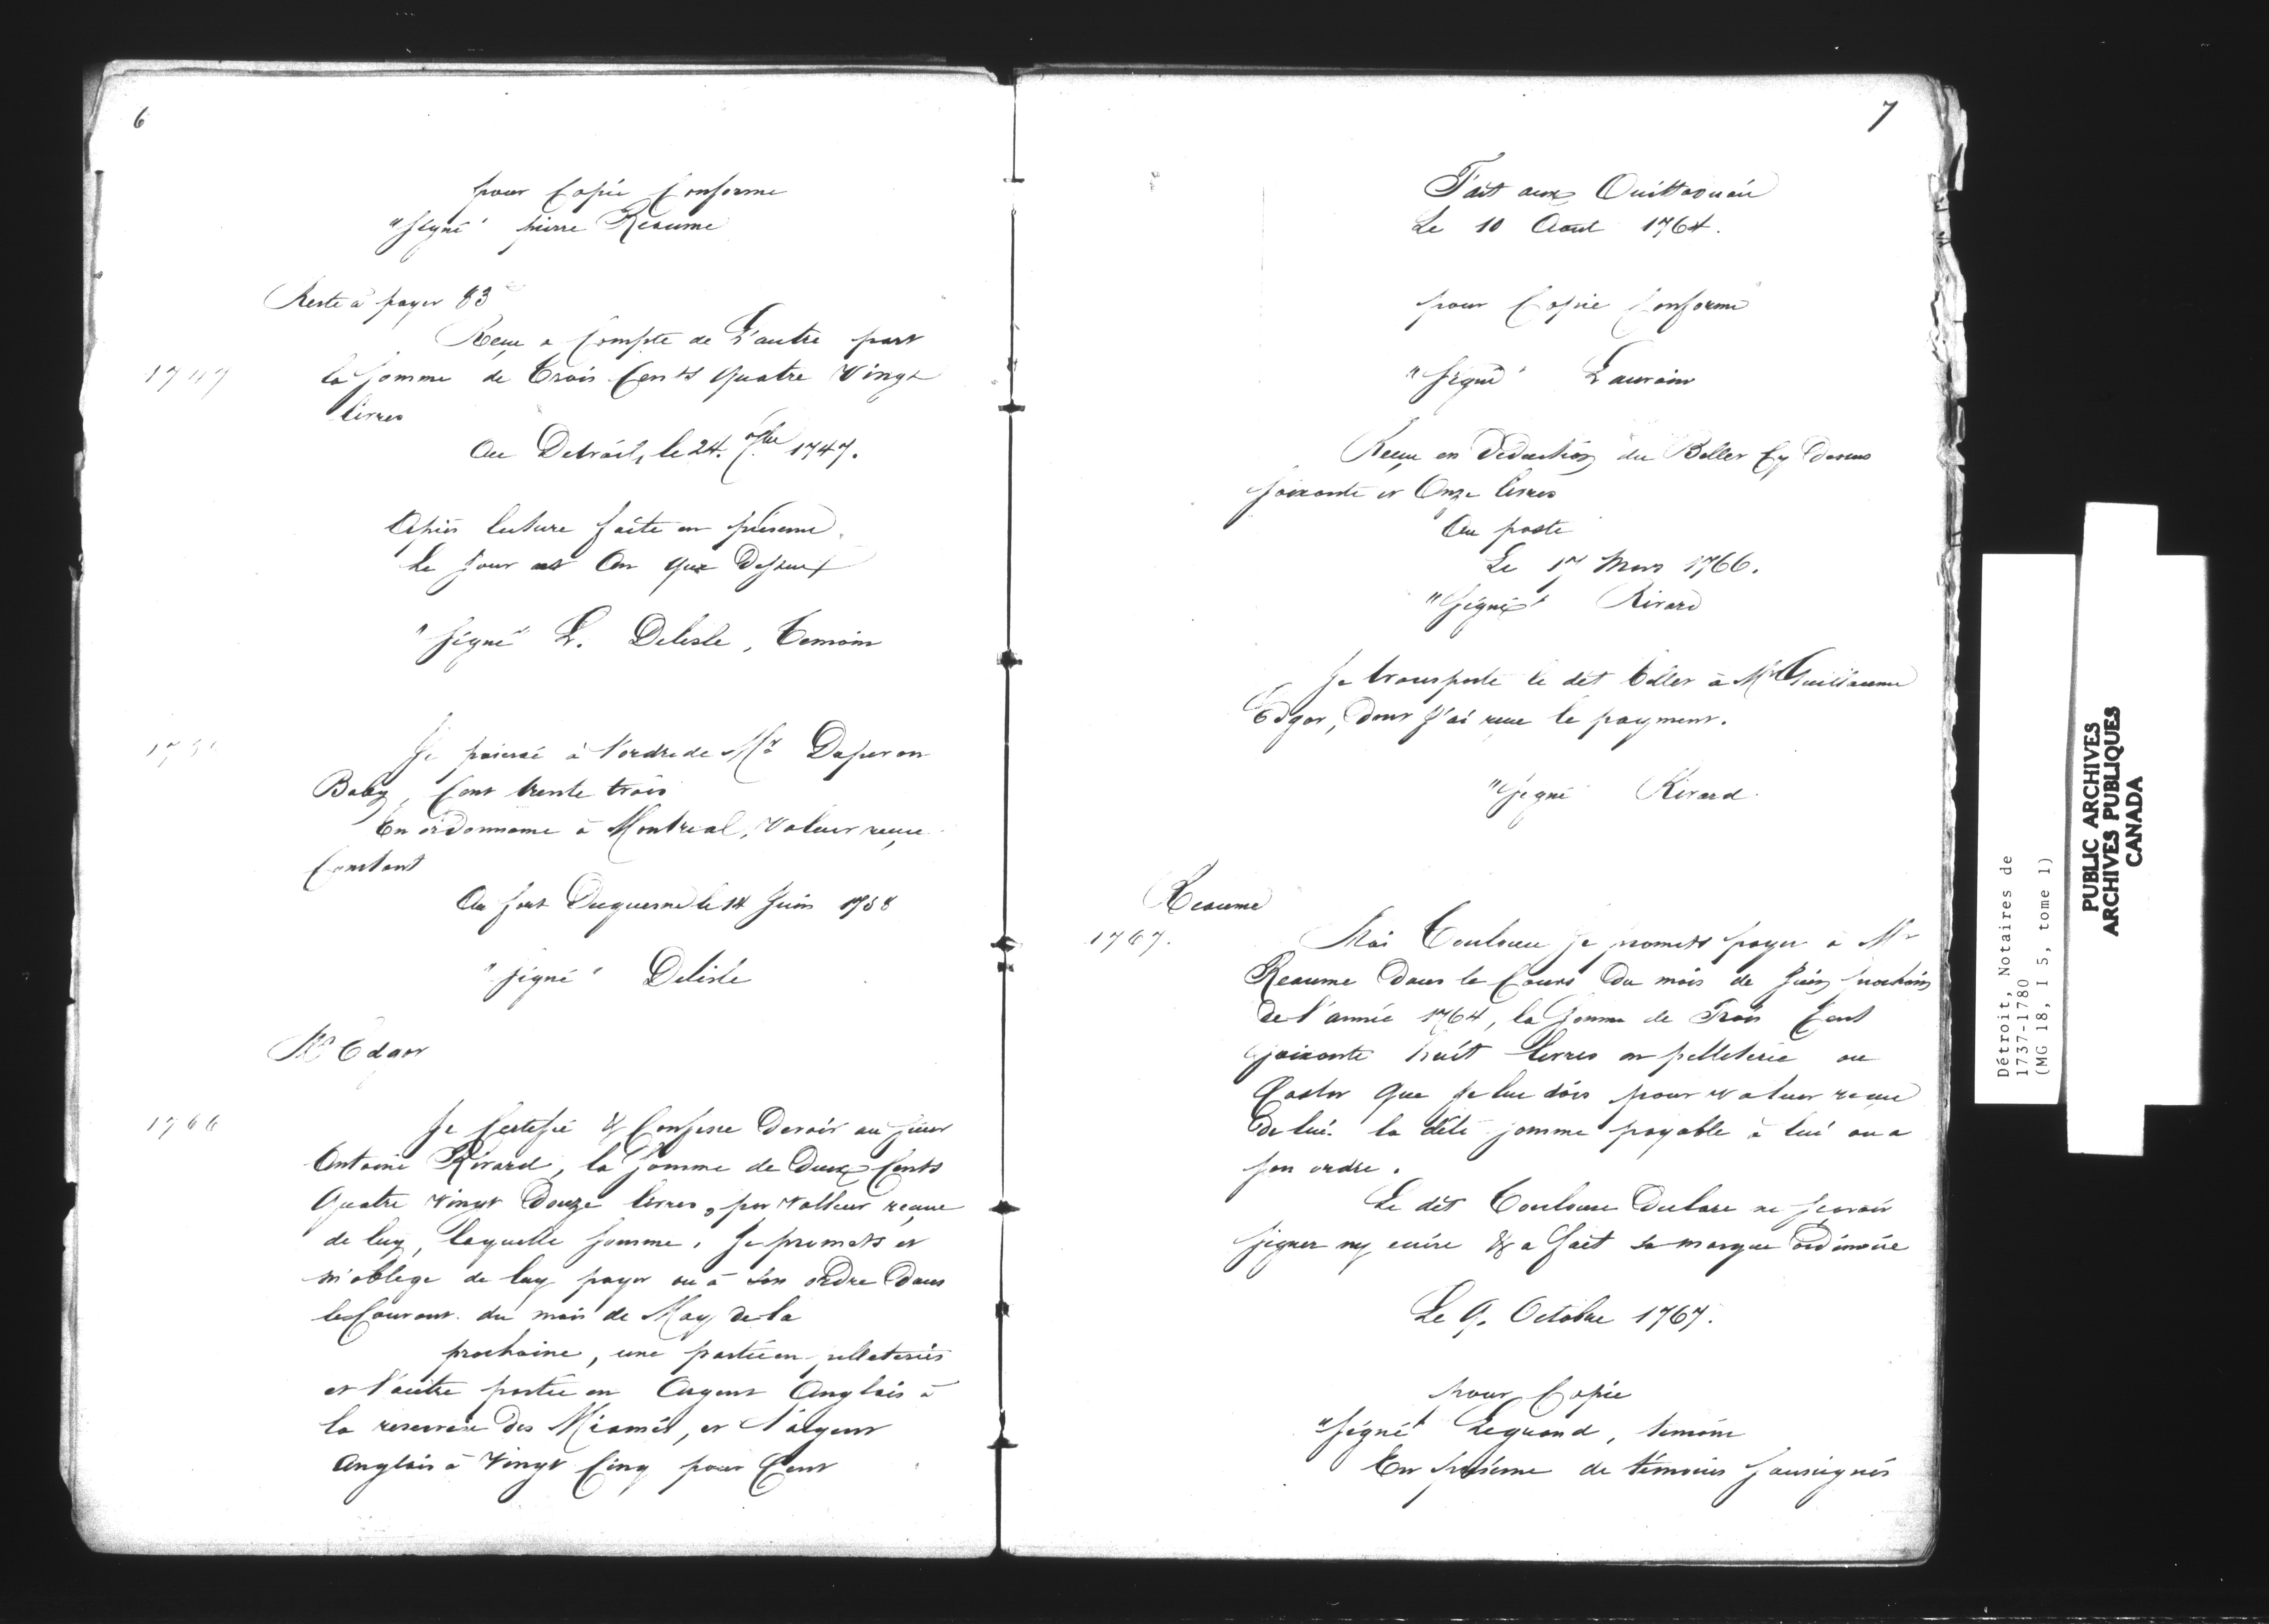 6
pour Copie Conforme
"Signé" pierre Reaume
Reste à payer 83
Reçu a Compte de L'autre part
1747
la Somme de Trois Cents Quatre Vingt
livres
Au Detroit, le 24. 1747.
Après lecture faite en présence
Le Jour et An que Dessus
"Signé" L. Delisle, Temoin
Je paierai à l'ordre de Mr Duperon
Baby, Cent trente trois
En ordonnance à Montreal, Valeur reçue
Constant
Au fort Duquesne le 14 Juin 1758
"Signé" Delisle
Mr Edgar
1766
Je Certifie & Confesse Devoir au Sieur
Antoine Rivard, la Somme de Deux Cents
Quatre Vingt Douze livres, par Valleur reçue
de luy, laquelle Somme, Je promets et
m'oblige de luy payer ou à son ordre Dans
le Courant du mois de May de la
prochaine, une partie en pelleteries
et l'autre partie en Argent Anglais à
la des Miamis, et l'argent
Anglais à Vingt Cinq pour Cent
7
Fait aux
Le 10 Aout 1764.
pour Copie Conforme
"Signé" Laurain
Reçu en Déduction du Billet Cy Dessus
Soixante et Onze livres
Au poste
Le 17 Mars 1766.
"Signé" Rivard
Je transporte le dit billet à Mr Guillaume
Edgar, dont J'ai reçue le payment.
"Signé Rivard.
Reaume
1767.
Moi Toulouse Je promets payer à Mr
Reaume Dans le Cours Du mois de Juin prochain
de l'année 1764, la Somme de Trois Cent
Soixante huit livres en pelleterie ou
Castor que Je lui dois pour valeur reçue
De lui. la dite somme payable à lui ou a
Son ordre.
Le dit Toulouse Declare ne Sçavoir
Signer ny ecrire & a fait sa marque ordinaire
Le 9. Octobre 1767.
pour Copie
"Signé" Legrand, temoin
En présence de témoins Soussignés
Détroit, Notaires de
1737-1780
(MG 18, I 5, tome 1)
PUBLIC ARCHIVES
ARCHIVES PUBLIQUES
CANADA